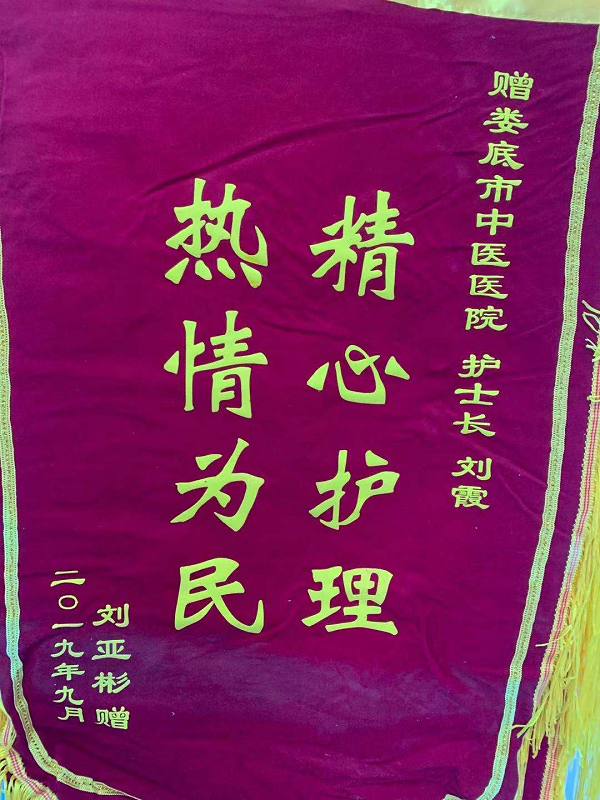 赠娄底市中医医院 护士长 刘霞
精心护理
热情为民
刘亚彬 赠
二〇一九年九月